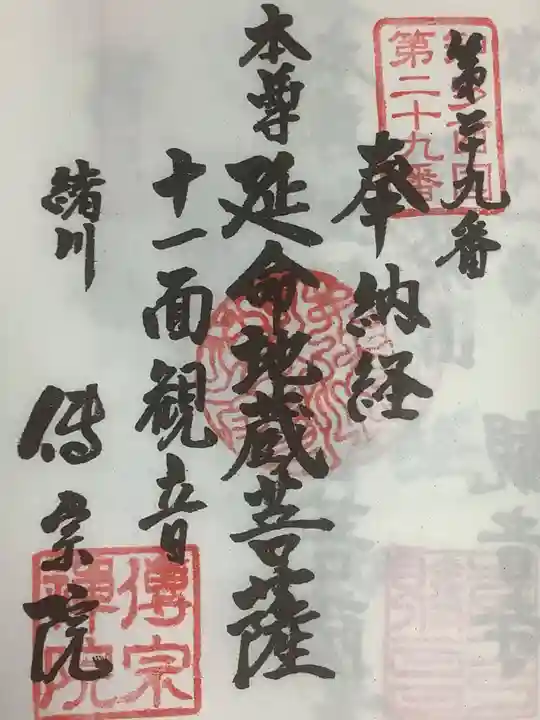 第二十九番
奉納経
本尊延命地蔵菩薩
十一面観音
緒川
傳宗院
第二十九番
傳宗
禅院